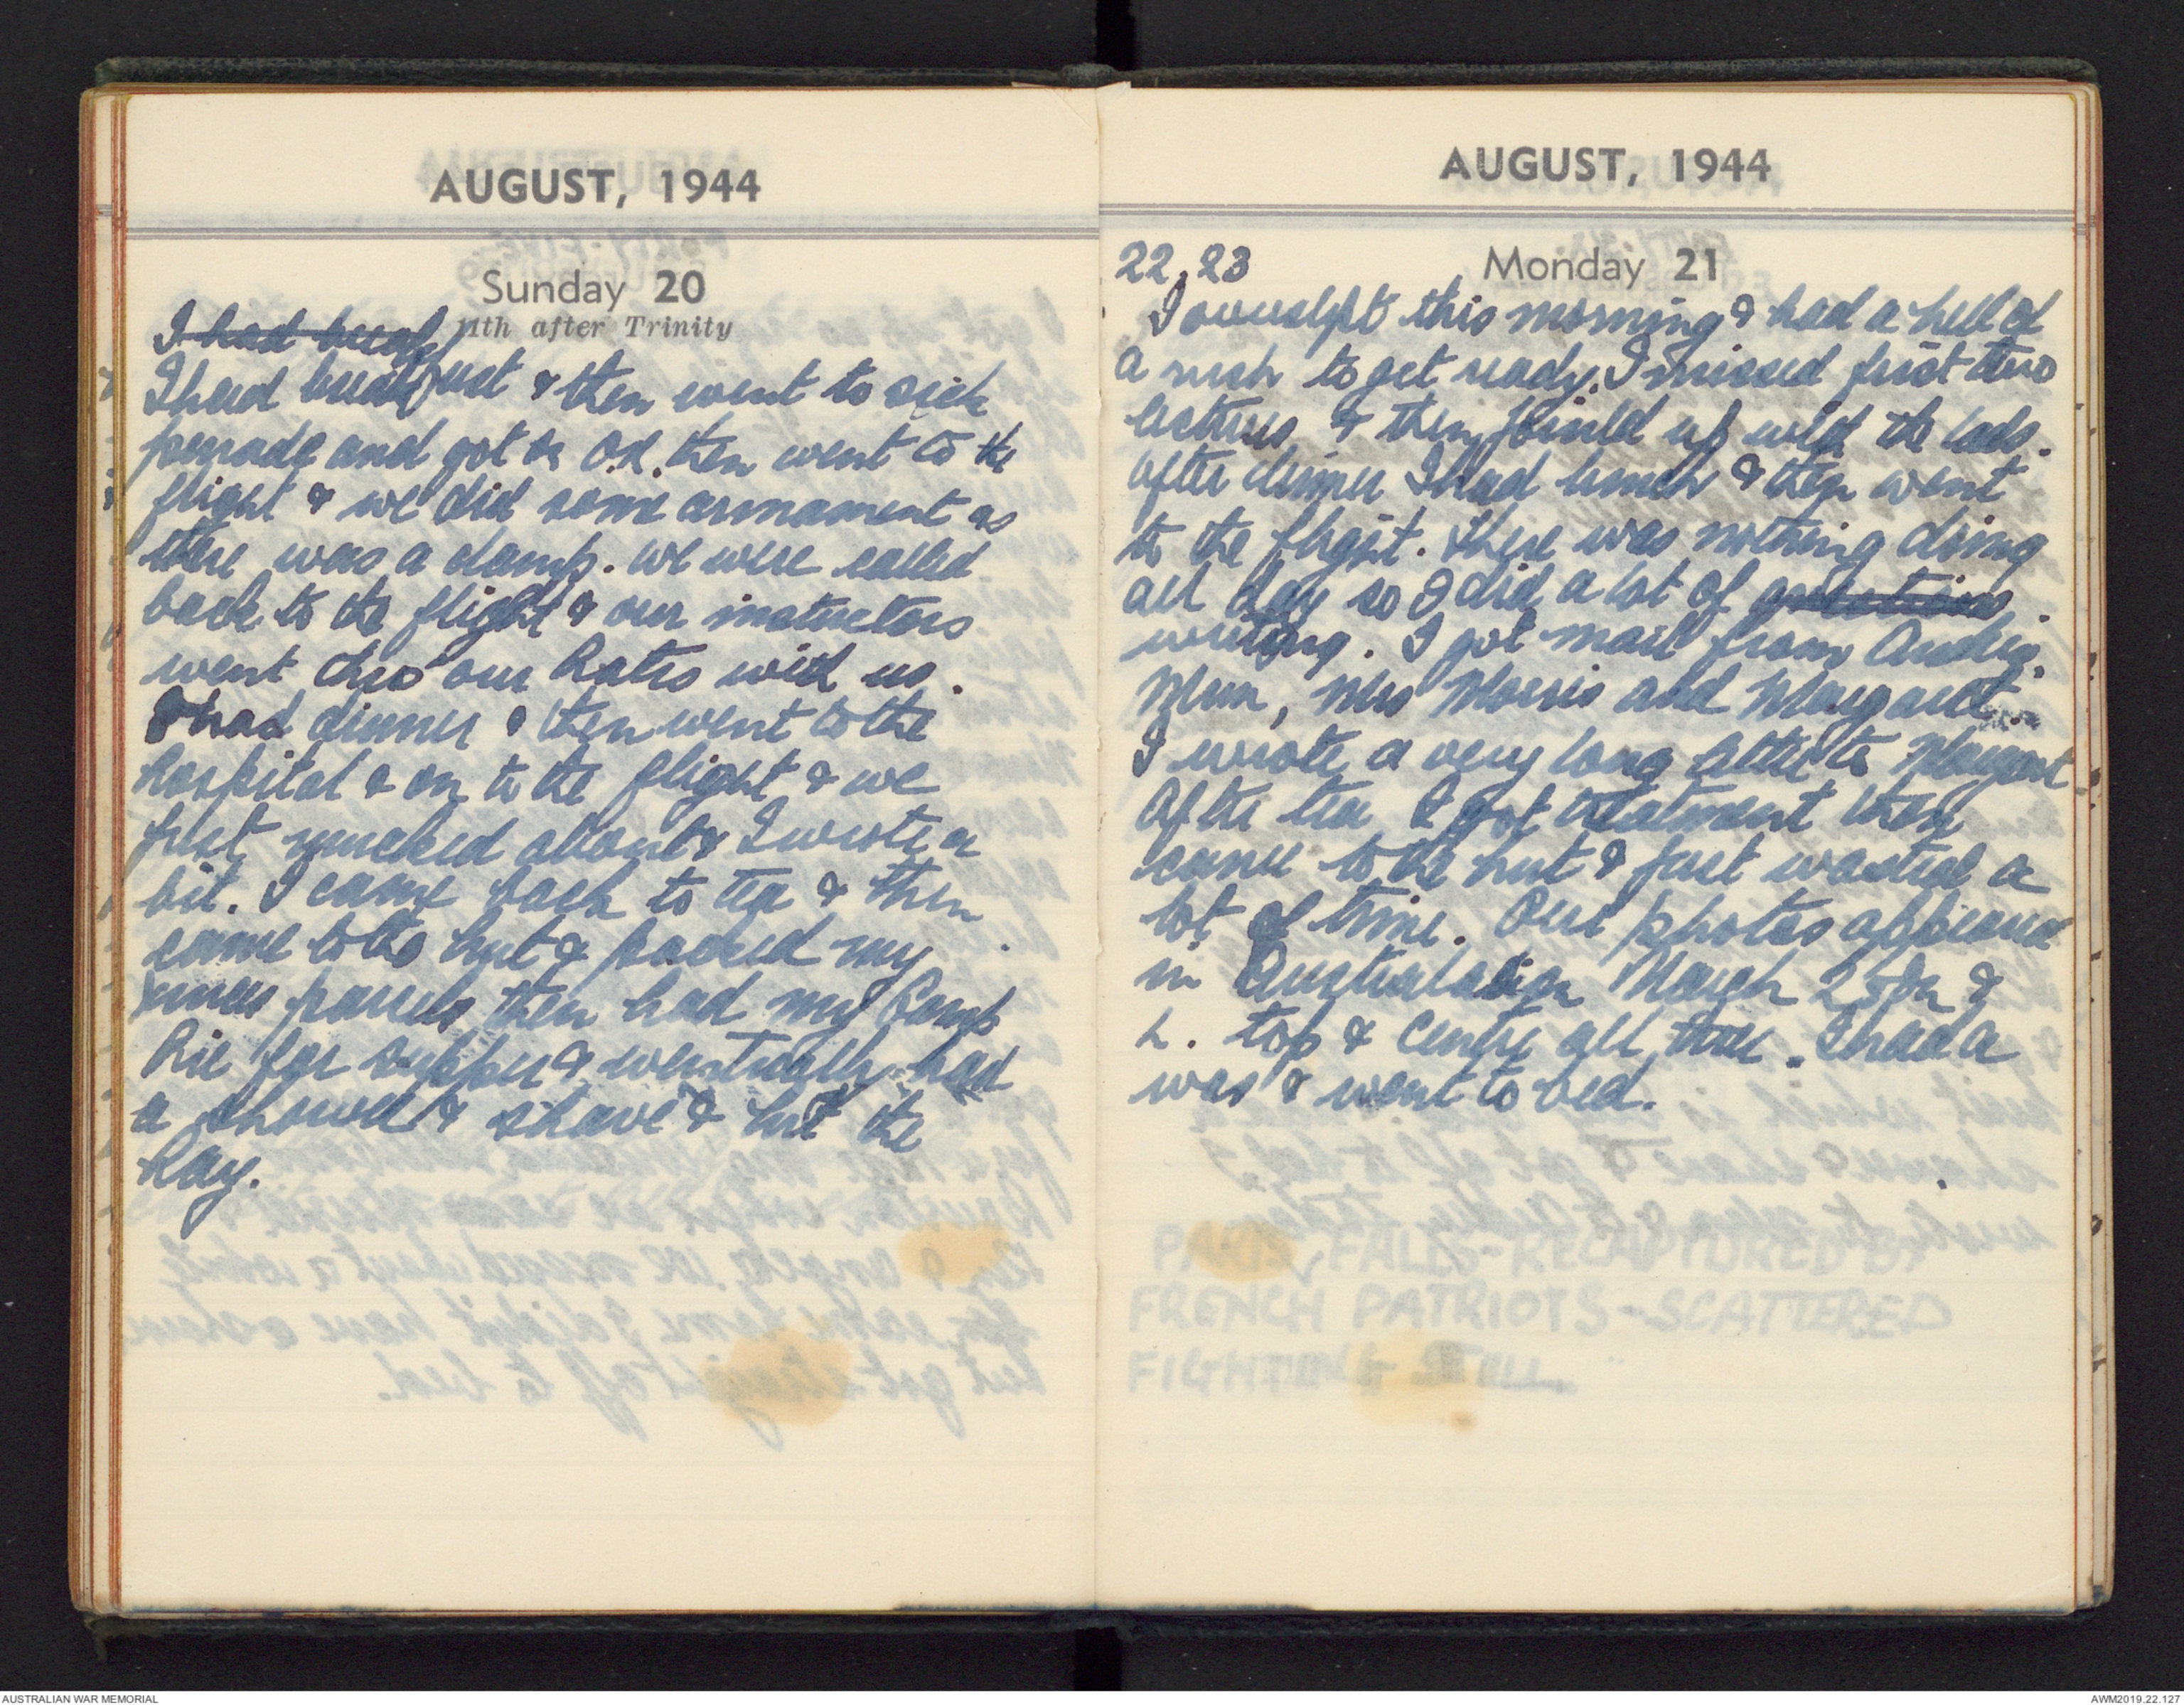 AUGUST, 1944
Sunday 20
11th after Trinity
I had breakf
I had breakfast & then went to sick
parade and got O.K. then went to the
flight & we did some armament as
there was a clamp. We were called
back to the flight & our instructors
went thro our Rates with us.
I had dinner & then went to the
hospital & on to the flight & we
just mucked about & I wrote a
bit. I came back to tea & then
came to the hut & packed my
xmas parcels then had my
for supper & eventually had
a shower & shave & hit the
hay.
AUGUST, 1944
Monday 21
22, 23
I overslept this morning & had a hell of
a rush to get ready. I missed first two
lectures & then joined up with the lads.
After dinner I had lunch & then went
to the flight. There was nothing doing
all day so I did a lot of
writing. I got mail from
Mum, Mrs Morris and Margaret.
I wrote a very long letter to Margaret
After tea I got treatment then
came to the hut & just wasted a
lot of time. Our photos appeared
in Australasian March 25th &
L. top & centre all told. I had a
was & went to bed.
PARIS, FALLS - RECAPTURED BY
FRENCH PATRIOTS - SCATTERED
FIGHTING STILL
AUSTRALIAN WAR MEMORIAL
AWM2019.22.127